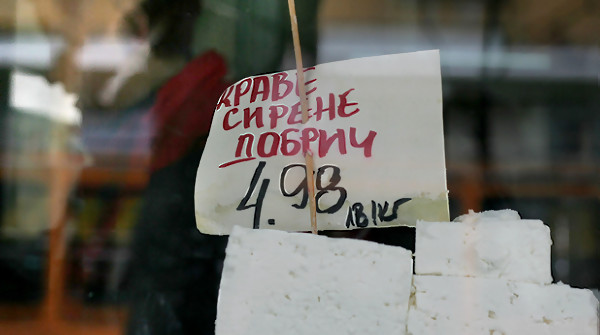 КРАВЕ
СИРЕНЕ
ДОБРИЧ
4.98 лв/кг